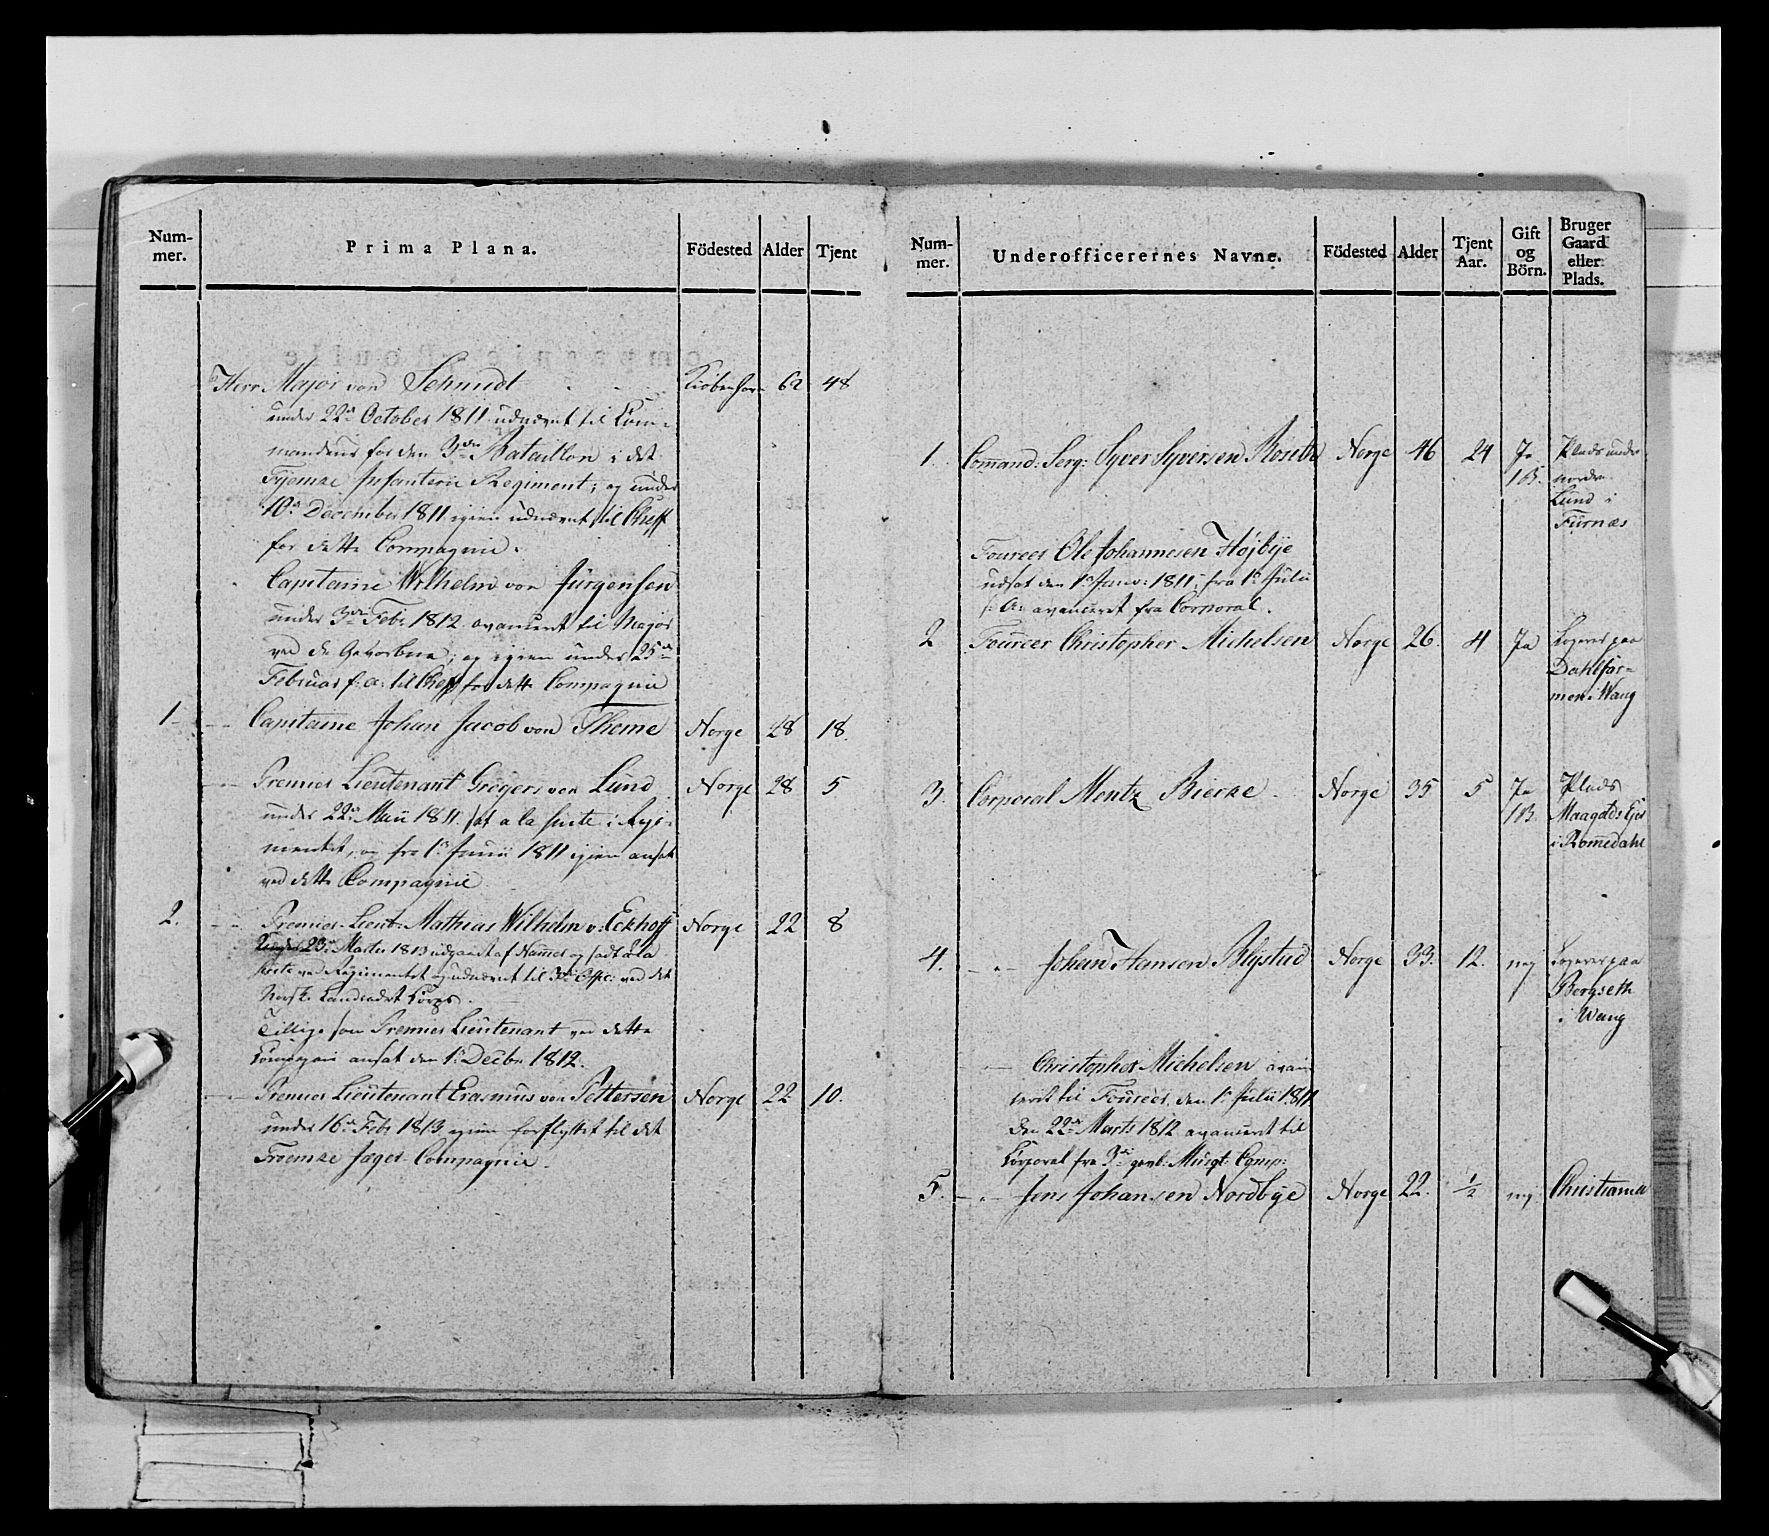 Num-
mer.
Prima Plana.
Födested
Alder
Tjent
Herr Major von Schmidt Kiöbenhavn 62 48
under 22de October 1811 udnævnt til Com-
mandeur for den 3die Batallion i det
Tyemske Infanterie Regiment; og under
10de December 1811 igien udnævnt til Cheff
for dette Compagnie.
Capitaine Wilhelm von Jürgensen
under 3die Febr 1812 avanceret til Major
ved de Gevorbne; og igien under 25de
Februar s: a: til Cheff for dette Compagnie
1 Capitaine Johan Jacob von Theme Norge 48 18.
Premier Lieutenant Gregers von Lund Norge 28 5
under 22de Maii 1811 sat a la suite i Regi-
mentet, og fra 1ste Junii 1811 igien ansat
ved dette Compagnie
2. Premier Lieut: Mathias Wilhelm v: Eckhoff Norge 22 8
Under 23de Marts 1813 udgaaet af Nummer og sadt a la
suite ved Regimentet og udnævnt til 3die Offic: ved det
Norske Landcadet Corps.
Tillige som Premier Lieutenant ved dette
Compagnie ansat den 1ste Decbr 1812.
Premier Lieutenant Erasmus von Pettersen Norge 22 10.
under 16de Febr 1813 igien forflyttet til det
Jæger Compagnie.
Num-
mer.
Underofficerernes Navne.
Födested
Alder
Tjent
Aar.
Gift
og
Börn.
Bruger
Gaard
eller
Plads.
1 Comand: Serg: Syver Syversen Norge 46 24 Ja Plads under
1 B. nordre
Lund i
Furnæs
Foureer Ole Johannesen Højbye
udsat den 1ste Janv: 1811; fra 1ste Julii
s: A: avanceret fra Corporal.
2 Foureer Christopher Michelsen Norge 26 4 Ja Logerer paa
Dahlfar-
men i Wang
3. Corporal Mentz Bierke Norge 35 5 Ja Plads
1 B. Ejer
i Romedahl
4. Johan Hansen Blystad Norge 33. 12. nej Logerer paa
Bergseth
i Wang
Christopher Michelsen avan
ceret til Foureer den 1ste Julii 1811
Den 22de Marts 1812 avanceret til
Corporal fra 3die gevb: Musqt: Comp:
5. Jens Johansen Nordbye Norge 22. 1/2 nej Christiania